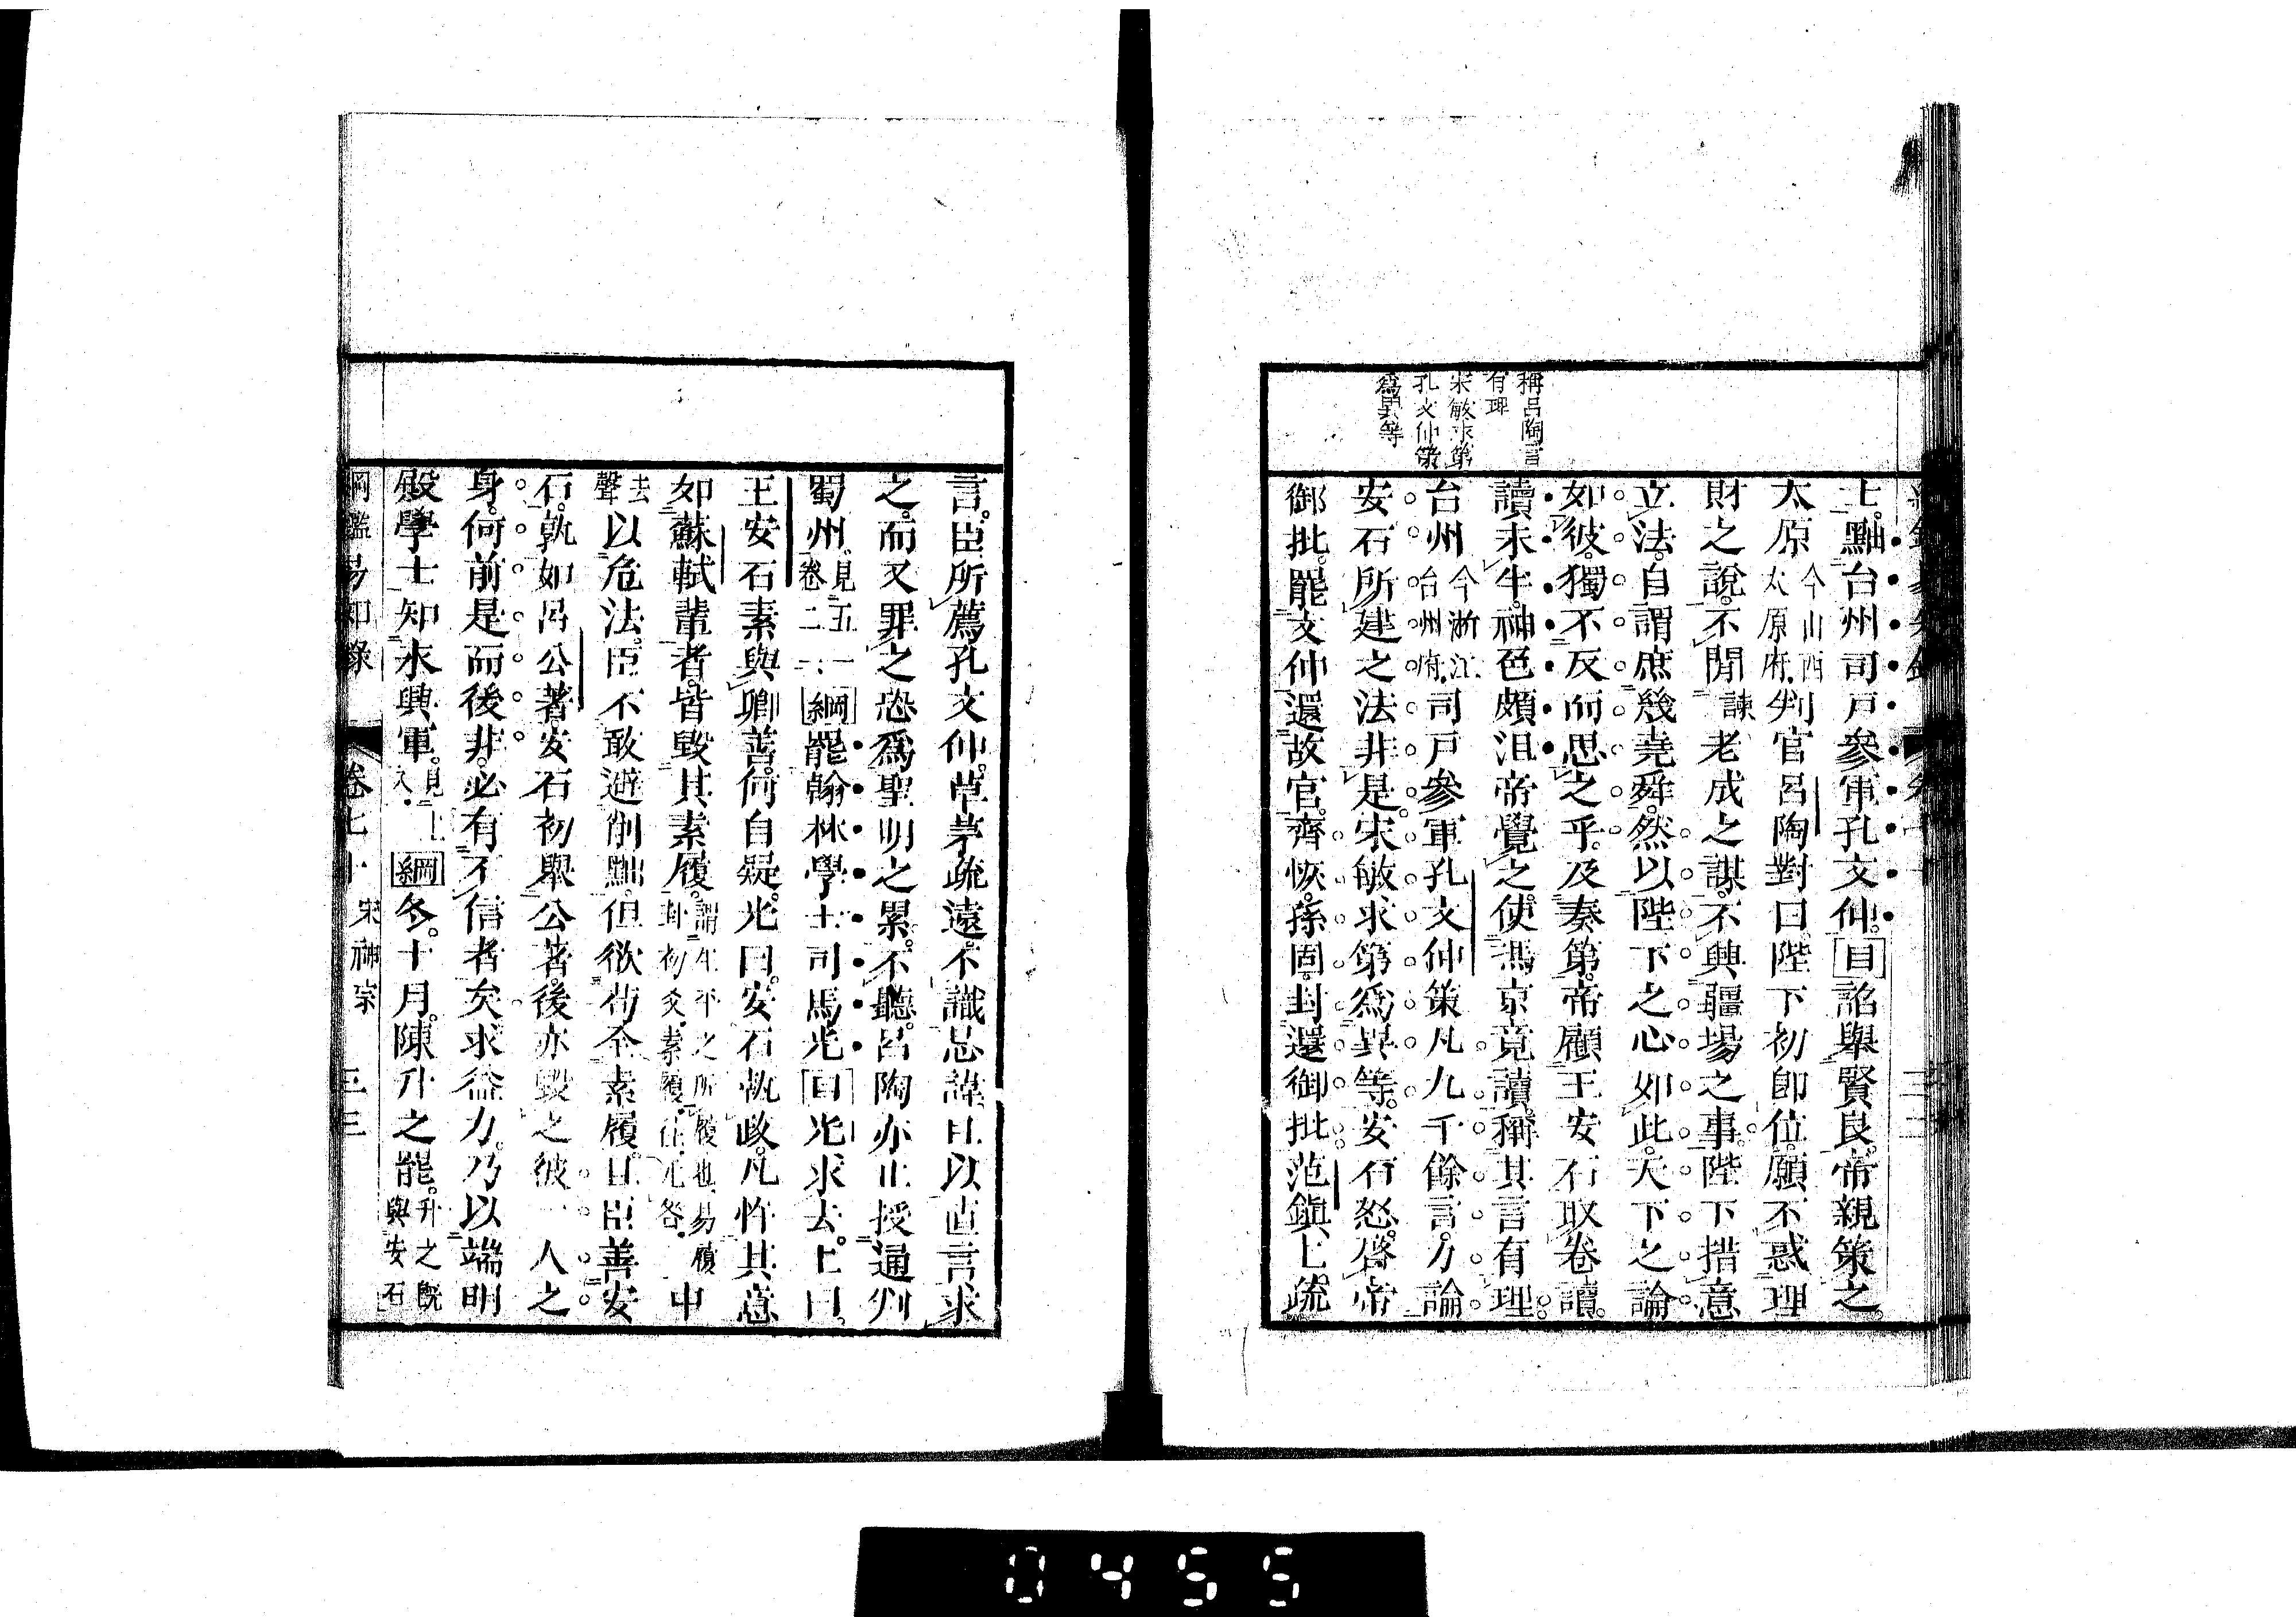 稱呂陶言
有理
宋敏求第
孔文仲策
爲異等
上。黜台州司戸參軍孔文仲。目詔舉賢良。帝親策之。
太原今山西太原府。判官呂陶對曰。陛下初卽位。願不惑理
財之說。不閒諫老成之謀。不興疆場之事。陛下措意
立法。自謂庶幾堯舜。然以陛下之心如此。天下之論
如彼。獨不反而思之乎。及奏第。帝顧王安石取卷讀。
讀未半。神色頗沮。帝覺之。使馮京竟讀。稱其言有理。
台州今浙江台州府。司戸參軍孔文仲策凡九千餘言。力論
安石所建之法非是。宋敏求第爲異等。安石怒。啓帝
御批。罷文仲還故官。齊恢。孫固。封還御批。范鎭上疏
言。臣所薦孔文仲。草茅疏遠。不識忌諱。且以直言求
之。而又罪之。恐爲聖明之累。不聽。呂陶亦止授通判
蜀州。見五一卷二二。綱罷翰林學士司馬光目光求去。上曰。
王安石素與卿善。何自疑。光曰。安石執政。凡忤其意
如蘇軾輩者。皆毀其素履。謂生平之所履也。易履卦初爻。素履。往无咎。中
去聲以危法。臣不敢避削黜。但欲苟全素履。且臣善安
石。孰如呂公著。安石初舉公著。後亦毀之。彼一人之
身。何前是而後非。必有不信者矣。求益力。乃以端明
殿學士知永興軍。見上文。綱冬。十月。陳升之罷。升之旣與安石
綱鑑易知錄　卷七十　宋神宗　三三